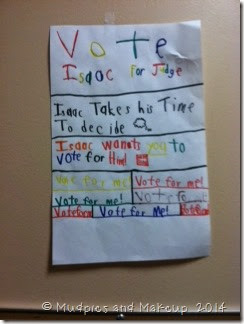 Vote
Isaac for Judge
Isaac Takes his Time
To decide
Isaac wants you to
vote for Him!
Vote for me! Vote for me!
Vote for me! Vote for me!
Vote for me! 
© Mudpies and Makeup 2014